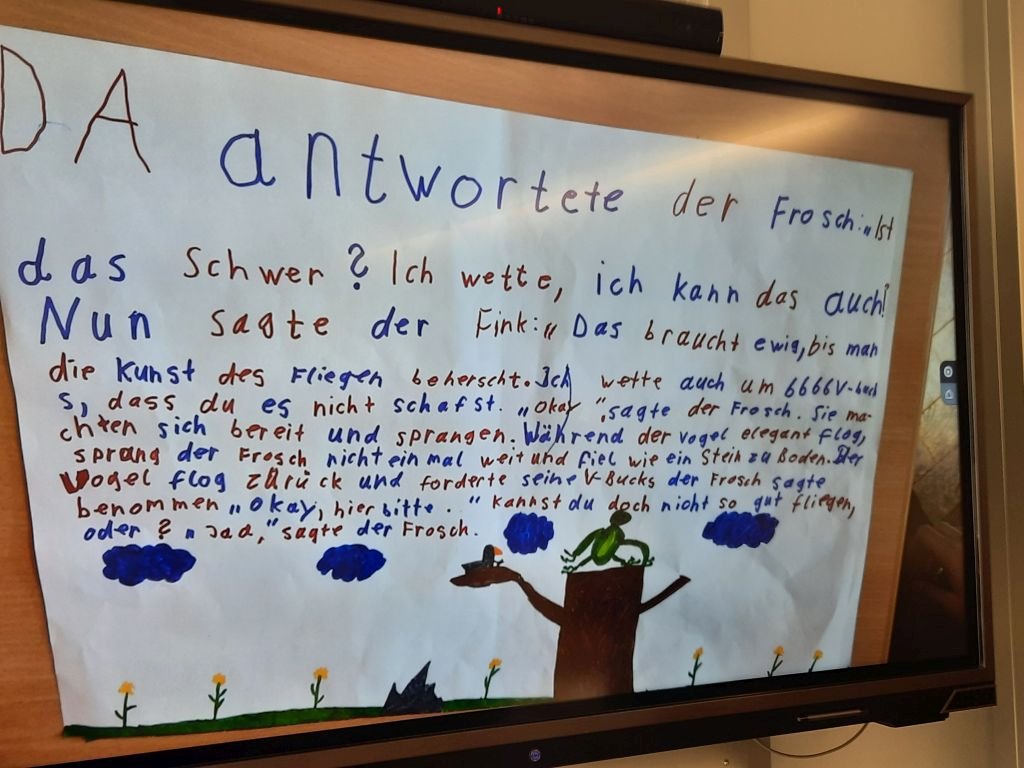 DA antwortete der Frosch: „Ist
das Schwer? Ich wette, ich kann das auch!"
Nun sagte der Fink: „Das braucht ewig, bis man
die Kunst des Fliegen beherscht. Ich wette auch um 6666V-buck
s, dass du es nicht schafst. „okay", sagte der Frosch. Sie ma-
chten sich bereit und sprangen. Während der Vogel elegant flog,
sprang der Frosch nicht einmal weit und fiel wie ein Stein zu Boden. Der
Vogel flog zurück und forderte seine V-Bucks der Frosch sagte
benommen „Okay, hier bitte. " kannst du doch nicht so gut fliegen,
oder ? „ Jaa," sagte der Frosch.